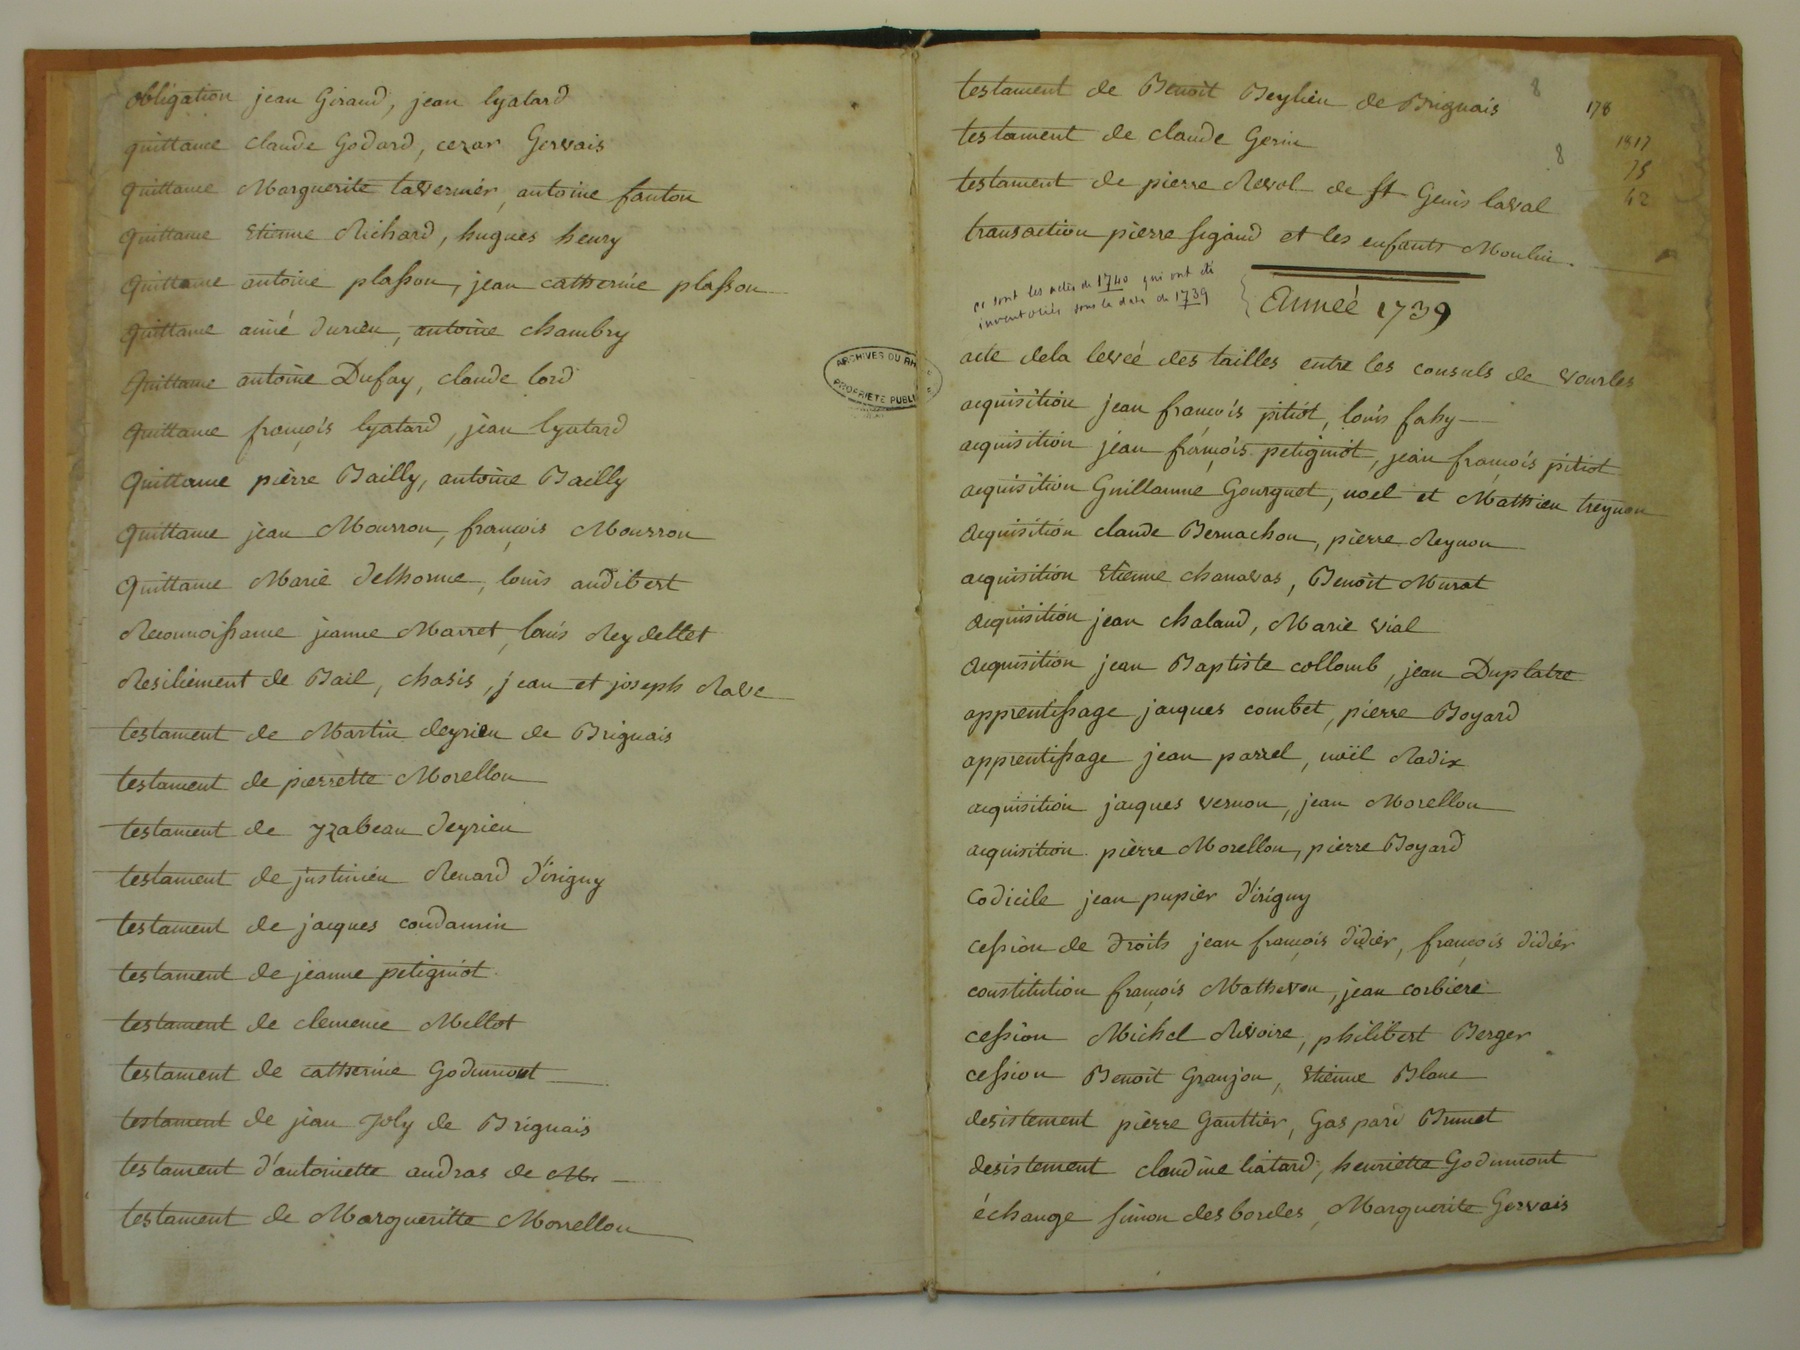 obligation jean Giraud, jean lyatard
quittance claude Godard, cezar Gervais
quittance Marguerite tavernier, antoine fanton
quittance Etienne Richard, hugues henry
quittance antoine plasson, jean catherine plasson
quittance aimé durieu, antoine chambry
quittance antoine Dufay, claude lord
quittance françois lyatard, jean lyatard
quittance pierre Bailly, antoine Bailly
quittance jean Mourron, françois Mourron
quittance Marie delhorme, louis audibert
Reconnoissance jeanne Marret, louis Reydellet
Resiliement de Bail, chasis, jean et joseph Rave
testament de Martin deyrieu de Brignais
testament de pierrette Morellon
testament de yzabeau deyrieu
testament de justinien Renard d'irigny
testament de jacques condamin
testament de jeanne petigniot
testament de clemence Mellot
testament de catherine Godumont
testament de jean Joly de Brignais
testament d'antoinette andras de M.
testament de Margueritte Morrellon
testament de Benoit Beylieu de Brignais
8
178
testament de claude Gerin
8
1817
75
42
testament de pierre Revol de St Genis laval
transaction pierre sigaud et les enfants Moulin.
ce sont les actes de 1740 qui ont été
inventoriés sous la date de 1739
Année 1739
ARCHIVES DU RH
PROPRIETE PUBL
acte de la levée des tailles entre les consuls de vourles
acquisition jean françois pitiot, louis fahy
acquisition jean françois petigniot, jean françois pitiot
acquisition Guillaume Gourguet, noel et Mathieu treynon
acquisition claude Bernachon, pierre Reynon
acquisition Etienne chanavas, Benoit Murat
acquisition jean chaland, Marie vial
acquisition jean Baptiste collomb, jean Duplatre
apprentissage jacques combet, pierre Boyard
apprentissage jean parrel, noël Radix
acquisition jacques vernon, jean Morellon
acquisition pierre Morellon, pierre Boyard
Codicile jean pupier d'irigny
cession de droits jean françois didier, françois didier
constitution françois Mathevon, jean corbiere
cession Michel Rivoire, philibert Berger
cession Benoit Granjon, Etienne Blanc
desistement pierre Gauttier, Gaspard Brunet
desistement claudine liatard, henriette Godumont
échange simon desbordes, Marguerite Gervais